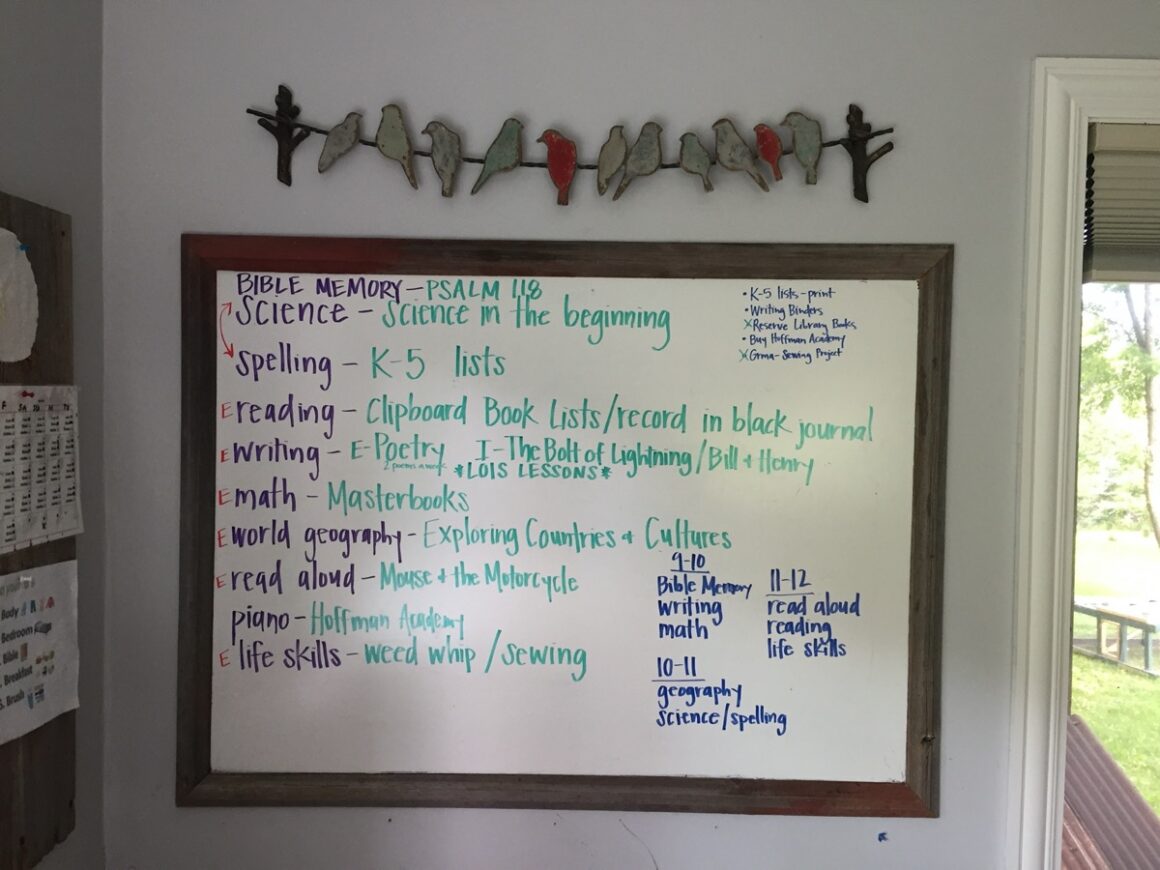 BIBLE MEMORY - PSALM 118
Science - Science in the beginning
spelling - K-5 lists
E reading - Clipboard Book Lists/record in black journal
E writing - E-Poetry I-The Bolt of Lightning/Bill + Henry
2 poems a week *LOIS LESSONS*
E math - Masterbooks
E world geography - Exploring Countries + Cultures
E read aloud - Mouse + the Motorcycle
piano - Hoffman Academy
E life skills - weed whip / sewing
• K-5 lists - print
• Writing Binders
X Reserve Library Books
• Buy Hoffman Academy
X Grma - Sewing Project
9-10
Bible Memory
writing
math
10-11
geography
science/spelling
11-12
read aloud
reading
life skills
F SA SU M TU
Body
Bedroom
Bible
Breakfast
Brush